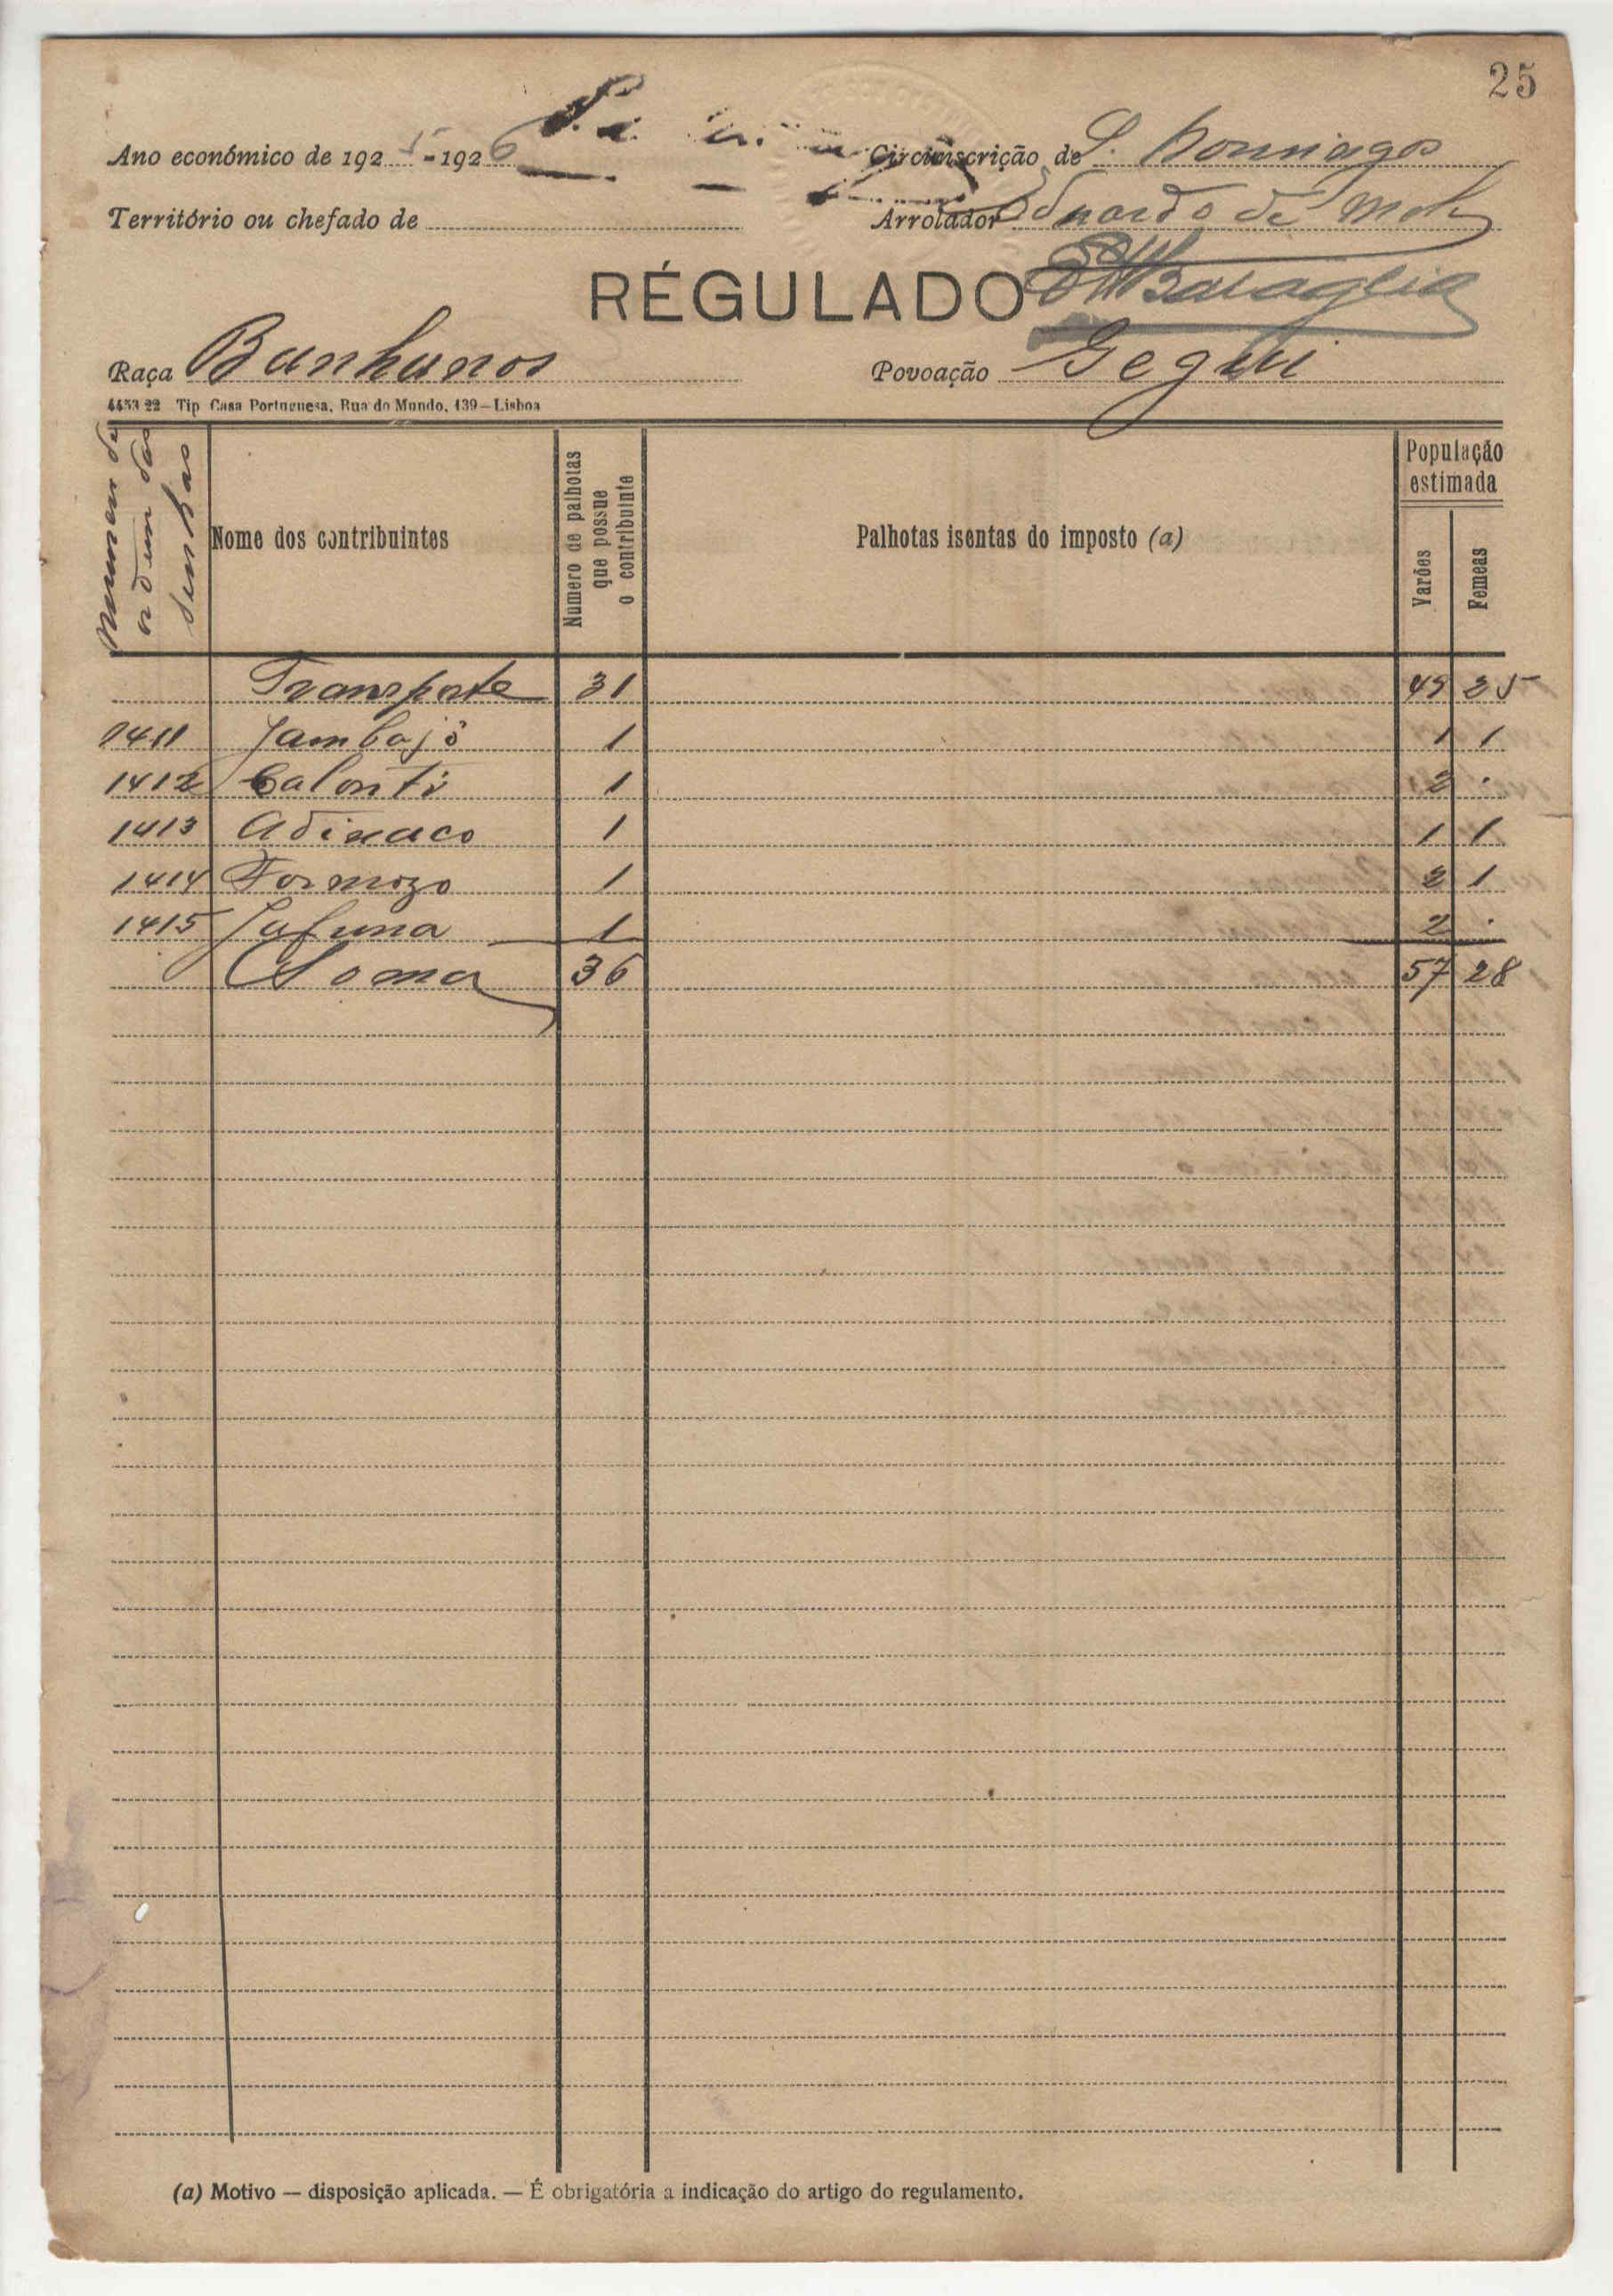 25
Ano económico de 1925-1926 Circunscrição de S. Domingos
Território ou chefado de Arrolador Eduardo de
RÉGULADO
Raça Banhunos Povoação Gegui
4453 22 Tip Casa Portuguesa, Rua do Mundo, 139—Lisboa
Numero de
ordem das
senhas
Nome dos contribuintes
Número de palhotas
que possue
o contribuinte
Palhotas isentas do imposto (a)
População
estimada
Varões
Femeas
Transporte 31 49 25
1411 Jambajó 1 1 1
1412 Calonti 1 2 .
1413 Adixaco 1 1 1
1414 Formozo 1 2 1
1415 Jafuna 1 2 .
Soma 36 57 28
(a) Motivo — disposição aplicada. — É obrigatória a indicação do artigo do regulamento.